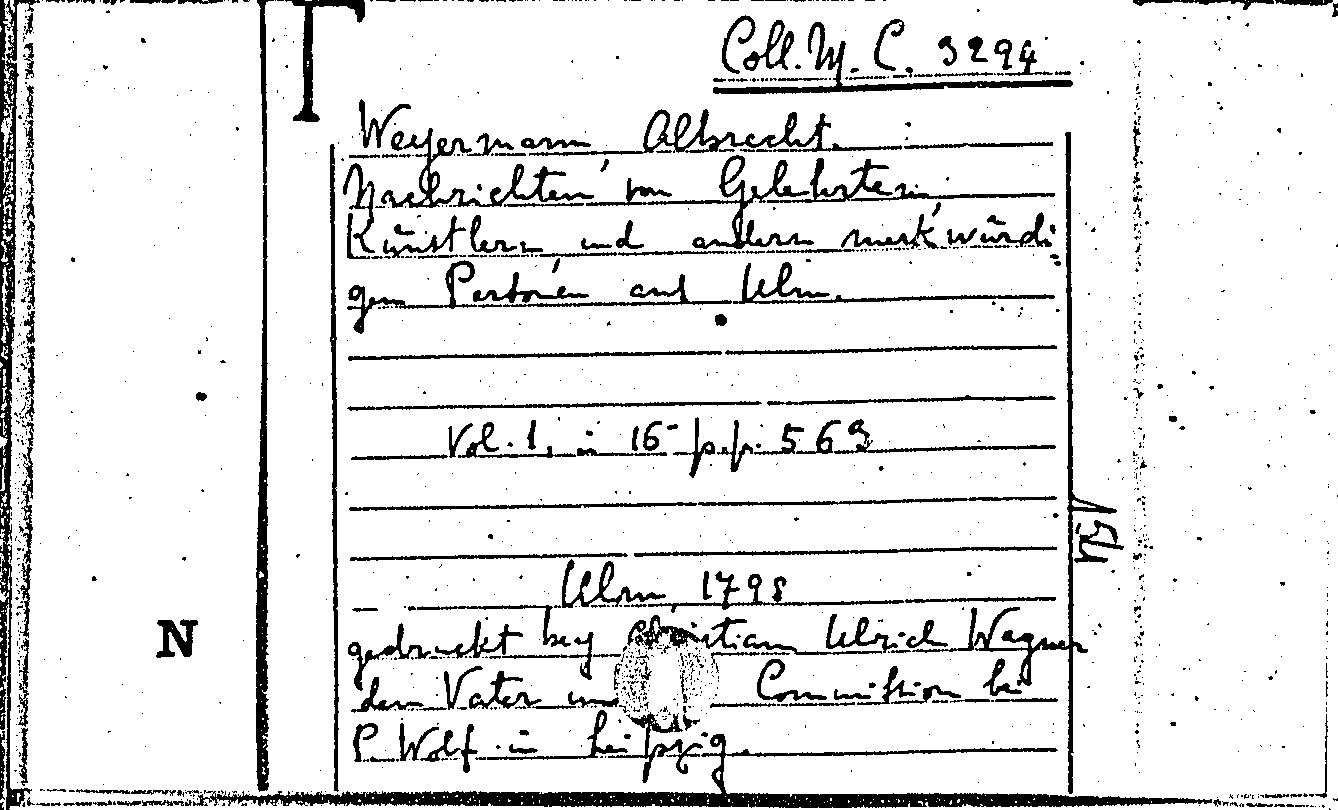 T
Coll. M. C. 3294
Weyermann, Albrecht.
Nachrichten von Gelehrten,
Künstlern und andern merkwürdi
gen Personen aus Ulm.
Vol. 1, in 16- p.p. 569
154
Ulm, 1798
N
gedruckt bey Christian Ulrich Wagner
dem Vater und Commission bei
P. Wolf in Leipzig.